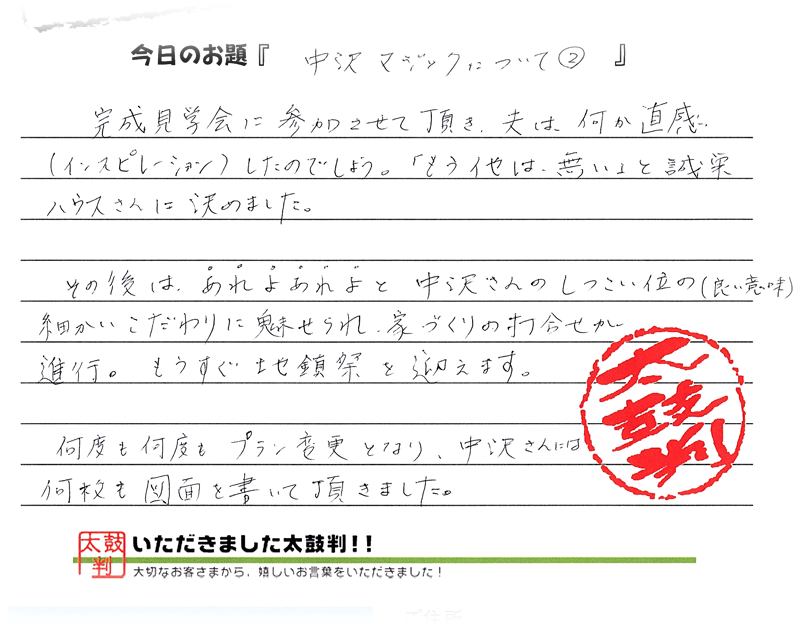 今日のお題『 中沢マジックについて② 』
完成見学会に参加させて頂き、夫は何か直感
(インスピレーション)したのでしょう。「もう他は、無い」と誠巣
ハウスさんに決めました。
その後は、あれよあれよと中沢さんのしつこい位の(良い意味)
細かいこだわりに魅せられ、家づくりの打合せが
進行。もうすぐ地鎮祭を迎えます。
何度も何度もプラン変更となり、中沢さんには
何枚も図面を書いて頂きました。
太鼓判
太鼓判
いただきました太鼓判!!
大切なお客さまから、嬉しいお言葉をいただきました!